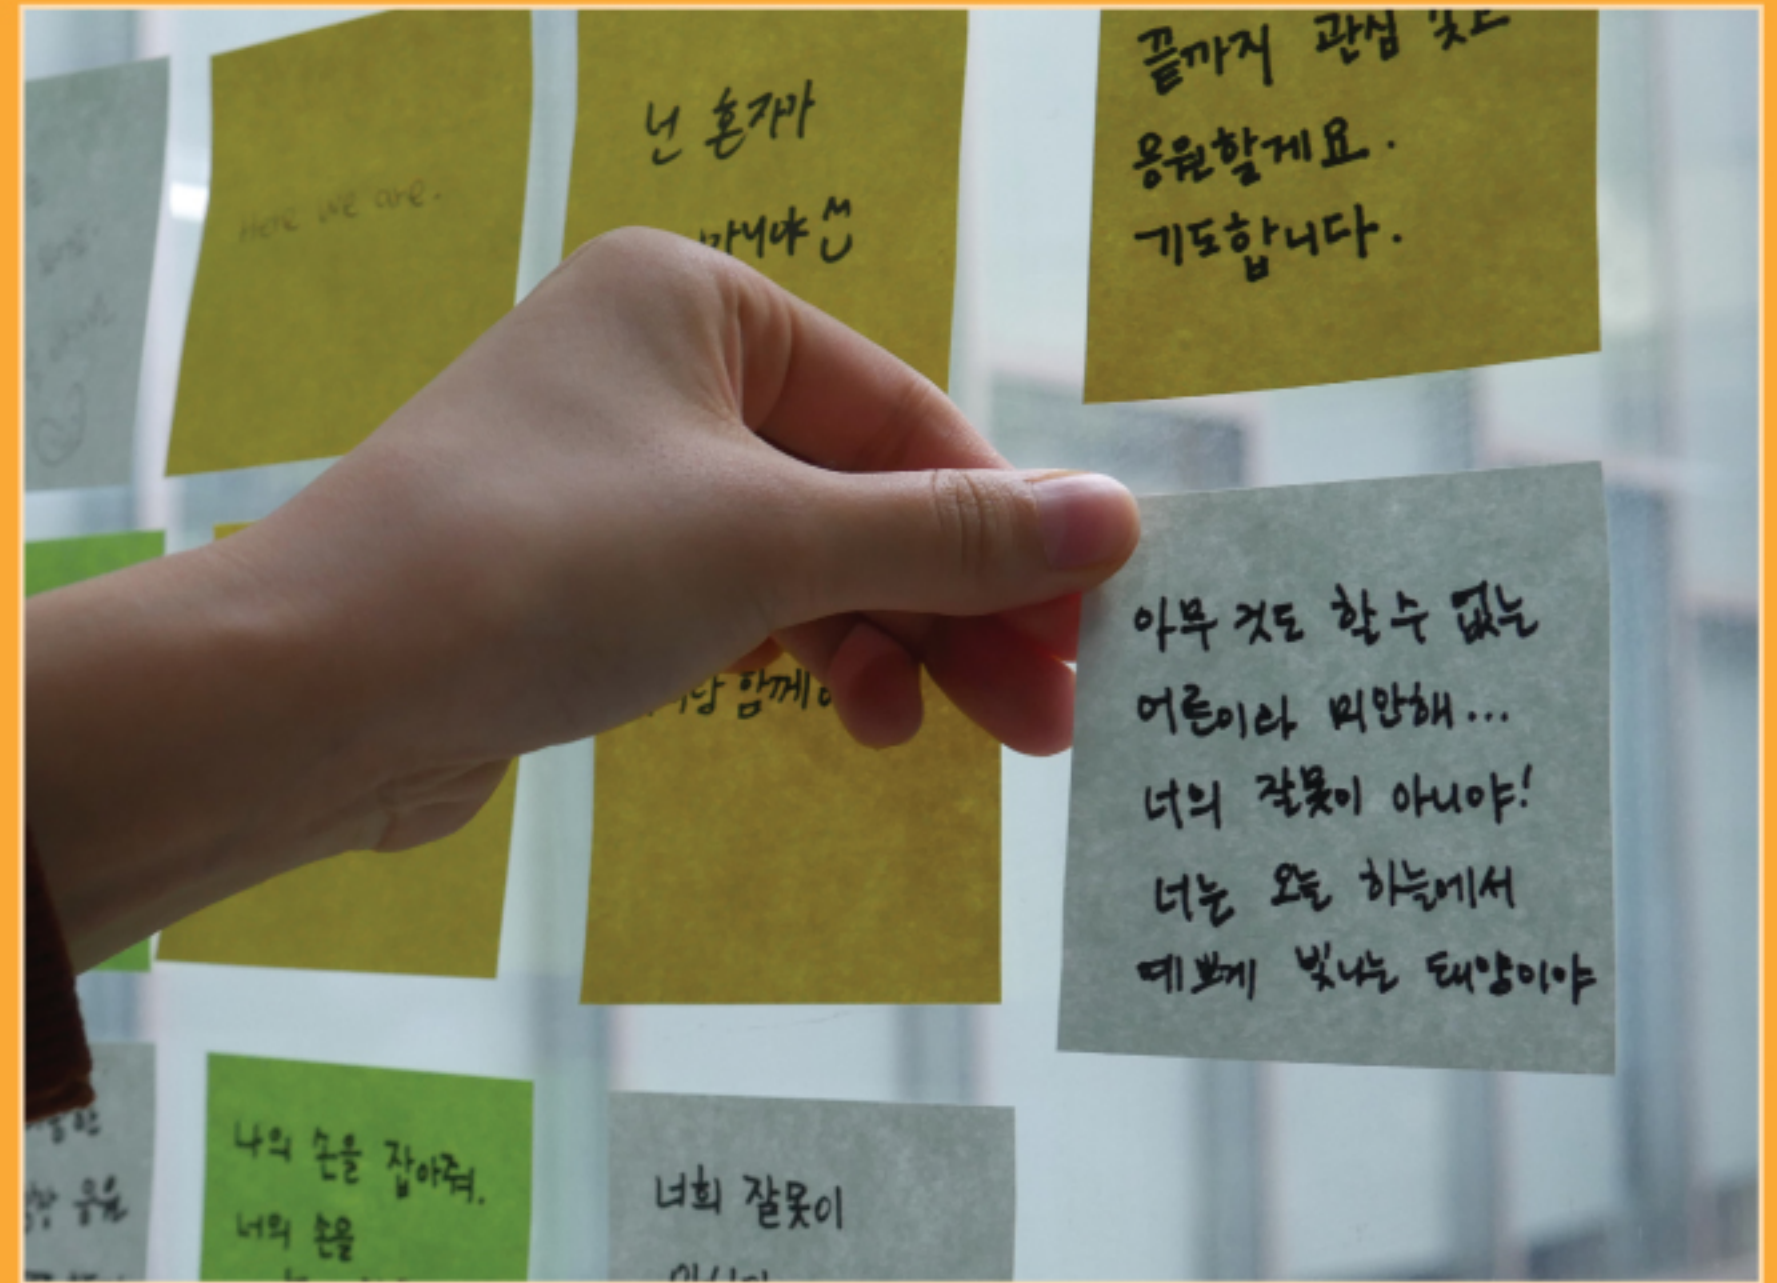 Here we are.
넌 혼자가
아니야
끝까지 관심 갖고
응원할게요.
기도합니다.
함께
아무 것도 할 수 없는
어른이라 미안해...
너의 잘못이 아니야!
너는 오늘 하늘에서
예쁘게 빛나는 태양이야
응원
나의 손을 잡아줘.
너의 손을
너희 잘못이